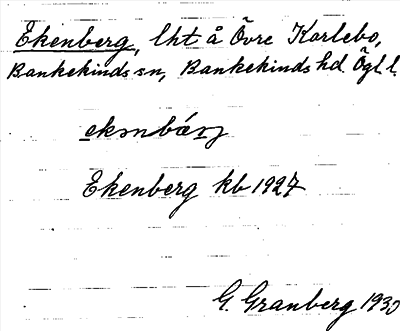 Ekenberg, lht å Övre Karlebo,
Bankekinds sn, Bankekinds hd. Ögl. l.
Ekenberg kb 1927
G. Granberg 1930